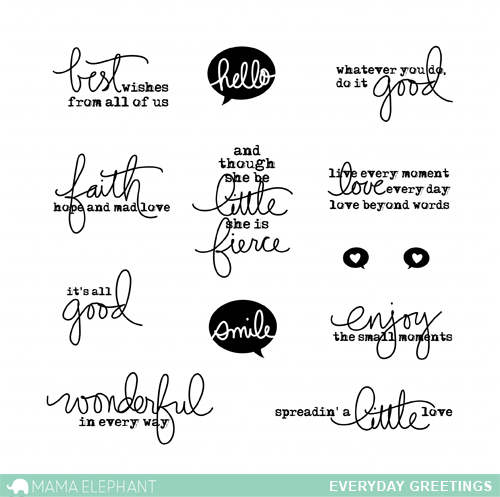 best wishes
from all of us
hello
whatever you do,
do it good
faith
hope and mad love
and
though
she be
little
she is
fierce
live every moment
love every day
love beyond words
it's all
good
smile
enjoy
the small moments
wonderful
in every way
spreadin' a little love
MAMA ELEPHANT
EVERYDAY GREETINGS